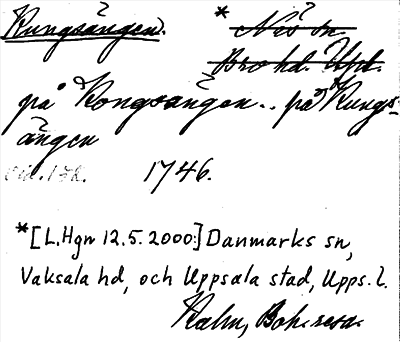 Kungsängen. * Näs sn
Bro hd. Upl.
på Kongsängen.. på Kungs-
ängen
1746.
*[L.Hgn 12.5.2000:] Danmarks sn,
Vaksala hd, och Uppsala stad, Upps. l.
Kalm, Boh. resa.